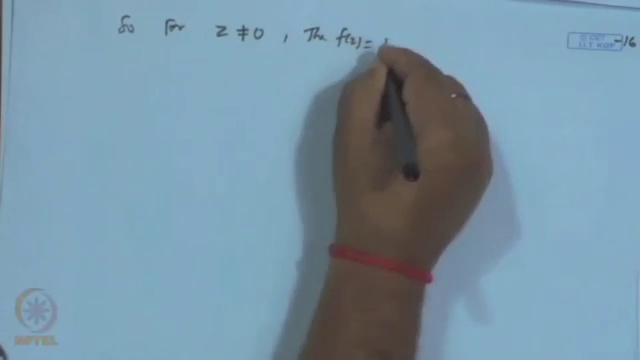 So for z ≠ 0, The f(z) =
© CET
I.I.T. KGP
-16
NPTEL